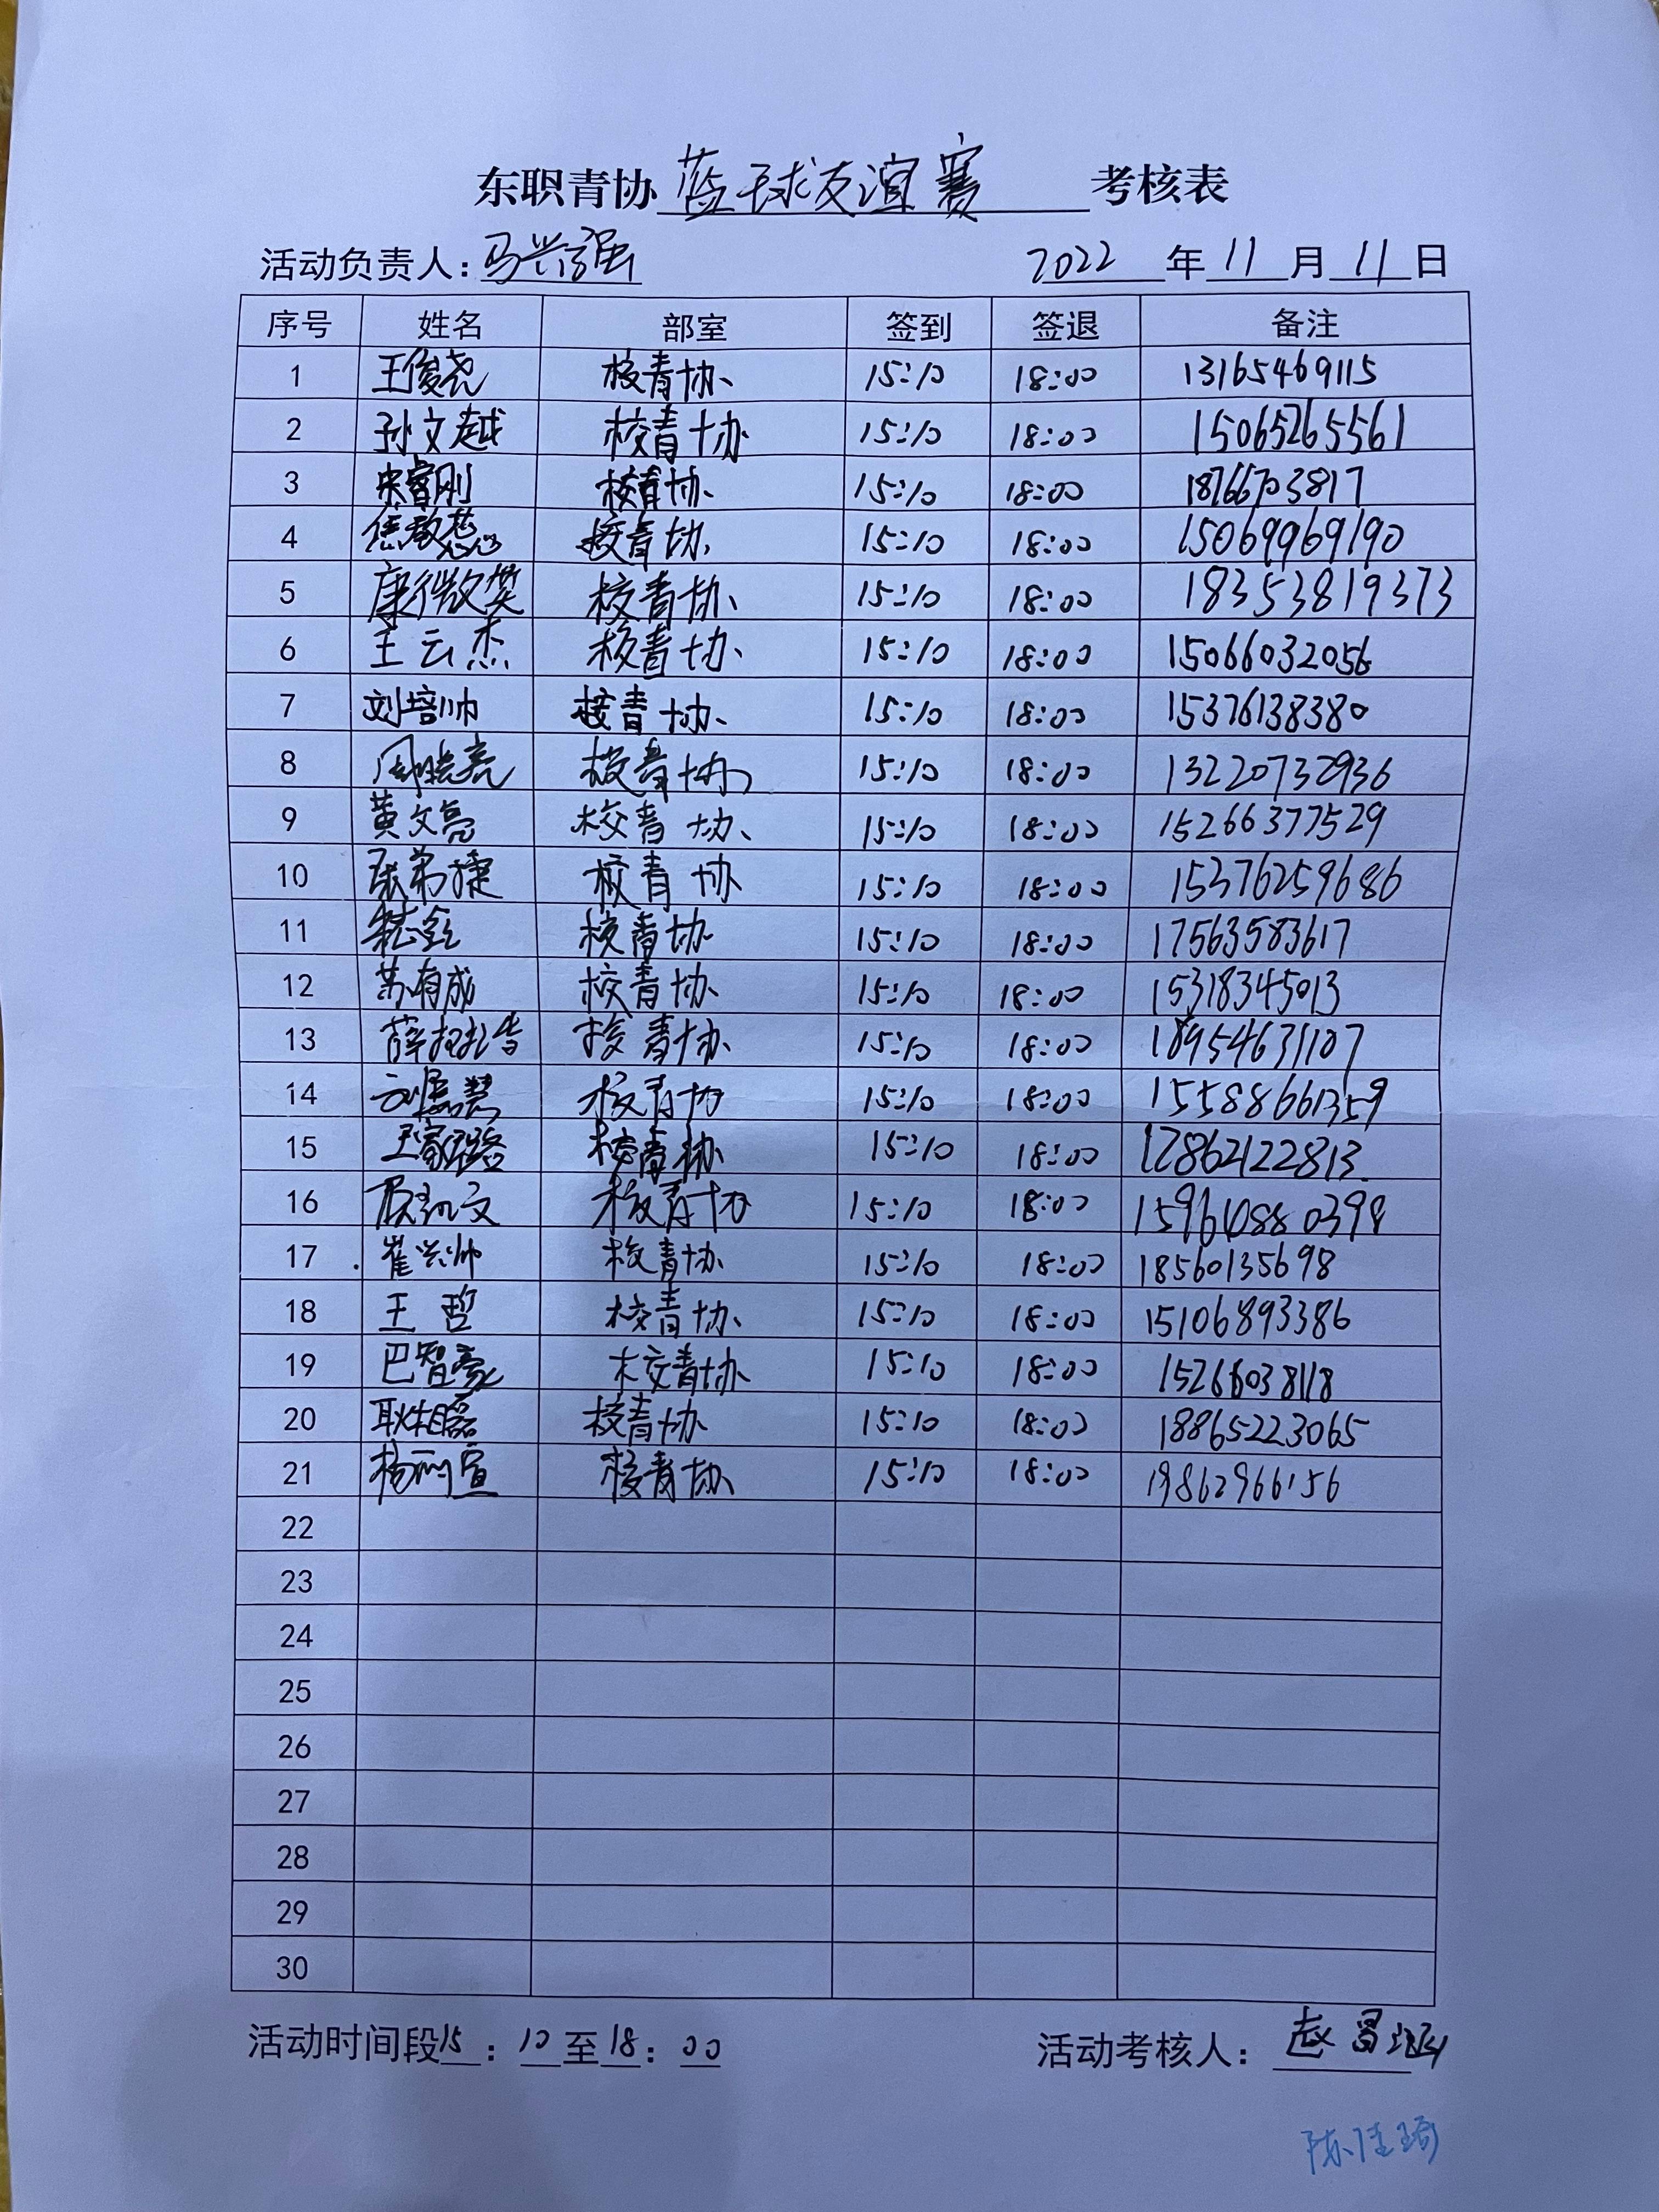 东职青协 蓝球友谊赛 考核表
活动负责人：马兴强 2022 年 11 月 11 日
序号 姓名 部室 签到 签退 备注
1 王俊尧 校青协 15:10 18:00 13165469115
2 孙文越 校青协 15:10 18:00 15065265561
3 宋睿刚 校青协 15:10 18:00 18766703817
4 校青协 15:10 18:00 15069969190
5 康微笑 校青协 15:10 18:00 18353819373
6 王云杰 校青协 15:10 18:00 15066032056
7 刘培帅 校青协 15:10 18:00 15376138380
8 周晓亮 校青协 15:10 18:00 13220732936
9 黄文亮 校青协 15:10 18:00 15266377529
10 张弟捷 校青协 15:10 18:00 15376259686
11 校青协 15:10 18:00 17563583617
12 苏有成 校青协 15:10 18:00 15318345013
13 校青协 15:10 18:00 18954631107
14 校青协 15:10 18:00 15588661359
15 校青协 15:10 18:00 17862122813
16 校青协 15:10 18:00
17 崔兴帅 校青协 15:10 18:00 18560135698
18 王哲 校青协 15:10 18:00 15106893386
19 巴智豪 校青协 15:10 18:00 15266038118
20 耿相磊 校青协 15:10 18:00 18865223065
21 杨雨萱 校青协 15:10 18:00 19862966156
22
23
24
25
26
27
28
29
30
活动时间段15：10至18：00 活动考核人：赵昌涵
陈佳琦